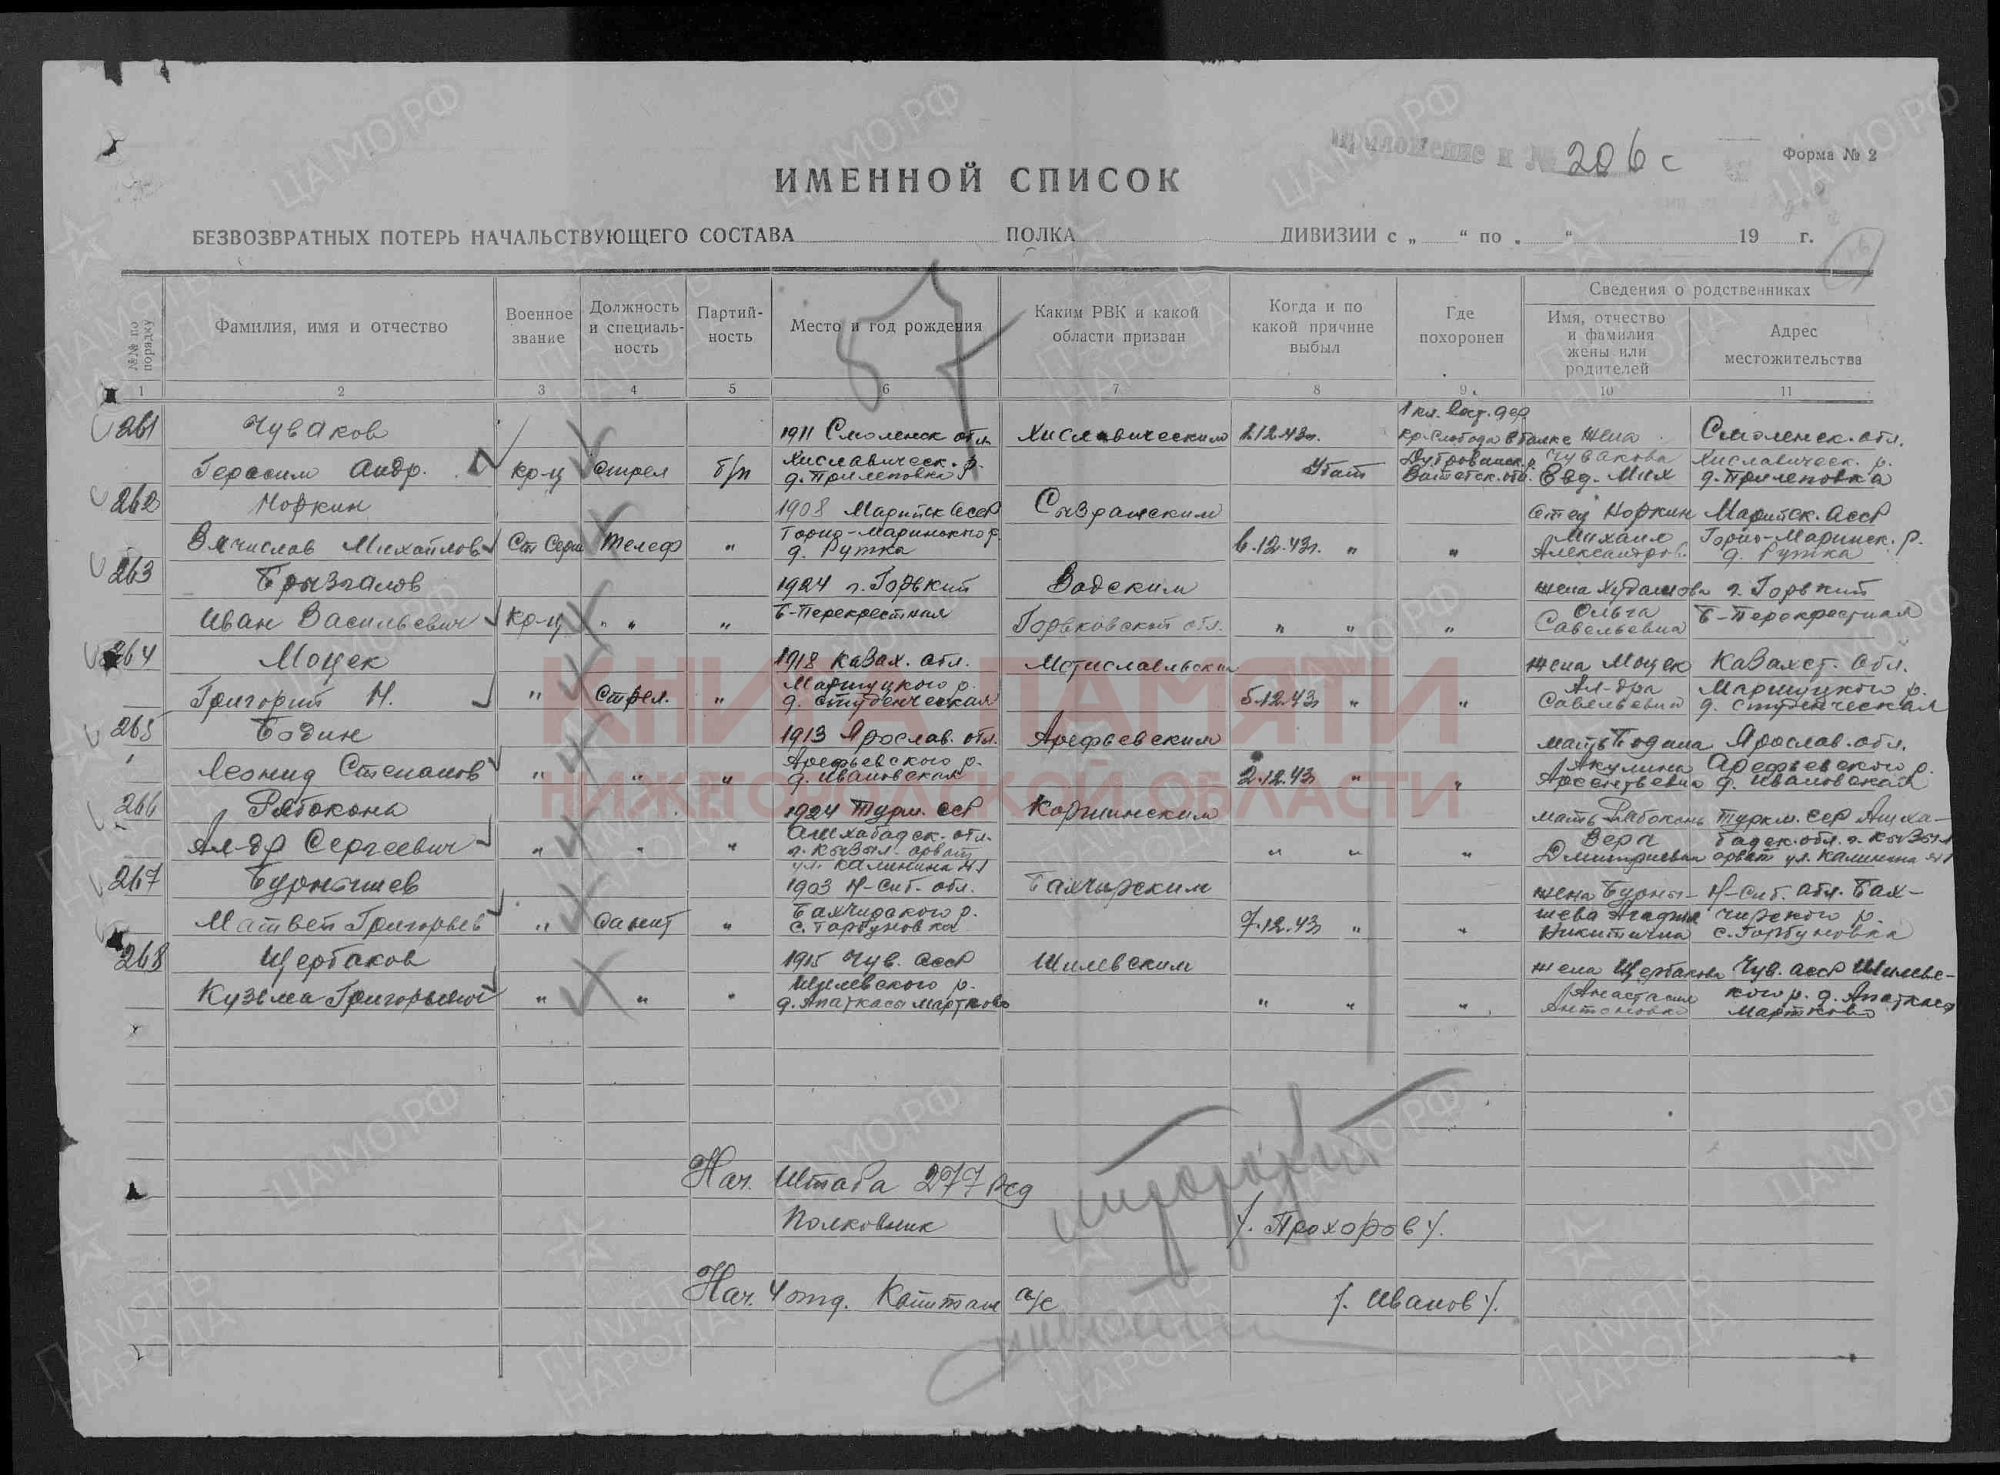 Приложение к № 206с
Форма № 2
ИМЕННОЙ СПИСОК
БЕЗВОЗВРАТНЫХ ПОТЕРЬ НАЧАЛЬСТВУЮЩЕГО СОСТАВА ПОЛКА ДИВИЗИИ с „ “ по „ “ 19 г.
№№ по порядку
Фамилия, имя и отчество
Военное звание
Должность и специаль-ность
Партий-ность
Место и год рождения
Каким РВК и какой области призван
Когда и по какой причине выбыл
Где похоронен
Сведения о родственниках
Имя, отчество и фамилия жены или родителей
Адрес местожительства
1 2 3 4 5 6 7 8 9 10 11
261 Чуваков 1911 Смоленск обл. Хиславическим 2.12.43г. 1 кл. Вост. дер. жена Смоленск. обл.
Герасим Андр. кр-ц Стрел б/п Хиславическ. р. д. Прилеповка Убит Дубровинск. р. Витебск. обл. Чувакова Евд. Мих Хиславическ. р. д. Прилеповка
262 Норкин 1908 Марийск АССР Сызранским отец Норкин Марийск. АССР
Вячислав Михайлов Ст Серж Телеф " Горно-Маринского р. д. Рутка 6.12.43г. " " Михаил Александров. Горно-Маринск. р. д. Рутка
263 Брызгалов 1924 г. Горький Вадским жена Худашова г. Горький
Иван Васильевич кр-ц " " " Б-Перекрестная Горьковской обл. " " " Ольга Савельевна Б-Перекрестная
264 Моцек 1918 Казах. обл. Мстиславльским жена Моцек Казахст. обл.
Григорий Н. " Стрел. " Мартуцкого р. д. Студенческая 5.12.43г " " Ал-дра Савельевна Мартуцкого р. д. Студенческая
265 Бодин 1913 Ярослав. обл. Арефьевским мать Бодина Ярослав. обл.
Леонид Степанов " " " Арефьевского р. д. Ивановская 2.12.43г " " Акулина Арсентьевна Арефьевского р. д. Ивановская
266 Рябоконь 1924 Турк. ССР Коршинским мать Рябоконь Туркм. ССР Ашха-
Ал-др Сергеевич " " " Ашхабадск. обл. г. Кызыл. арват ул. Калинина 41 " " " Вера Дмитриевна бадск. обл. г. Кызыл арват ул. Калинина 41
267 Бурнышев 1903 Н-Сиб. обл. Бахчирским жена Бурны- Н-Сиб. обл. Бах-
Матвей Григорьев " Санит " Бахчирского р. с. Горбуновка 7.12.43 " " шева Агафия Никитична чирского р. с. Горбуновка
268 Щербаков 1915 Чув. АССР Шилевским жена Щербакова Чув. АССР Шилевс-
Кузьма Григорьевич " " " Шилевского р. д. Апаткасы Мартково " " " Анастасия Антоновна кого р. д. Апаткасы Мартково
Нач. Штаба 277 сд
Полковник /. Прохоров /.
Нач. 4 отд. Капитан а/с /. Иванов /.
КНИГА ПАМЯТИ
НИЖЕГОРОДСКОЙ ОБЛАСТИ
ЦАМО.РФ
ПАМЯТЬ НАРОДА